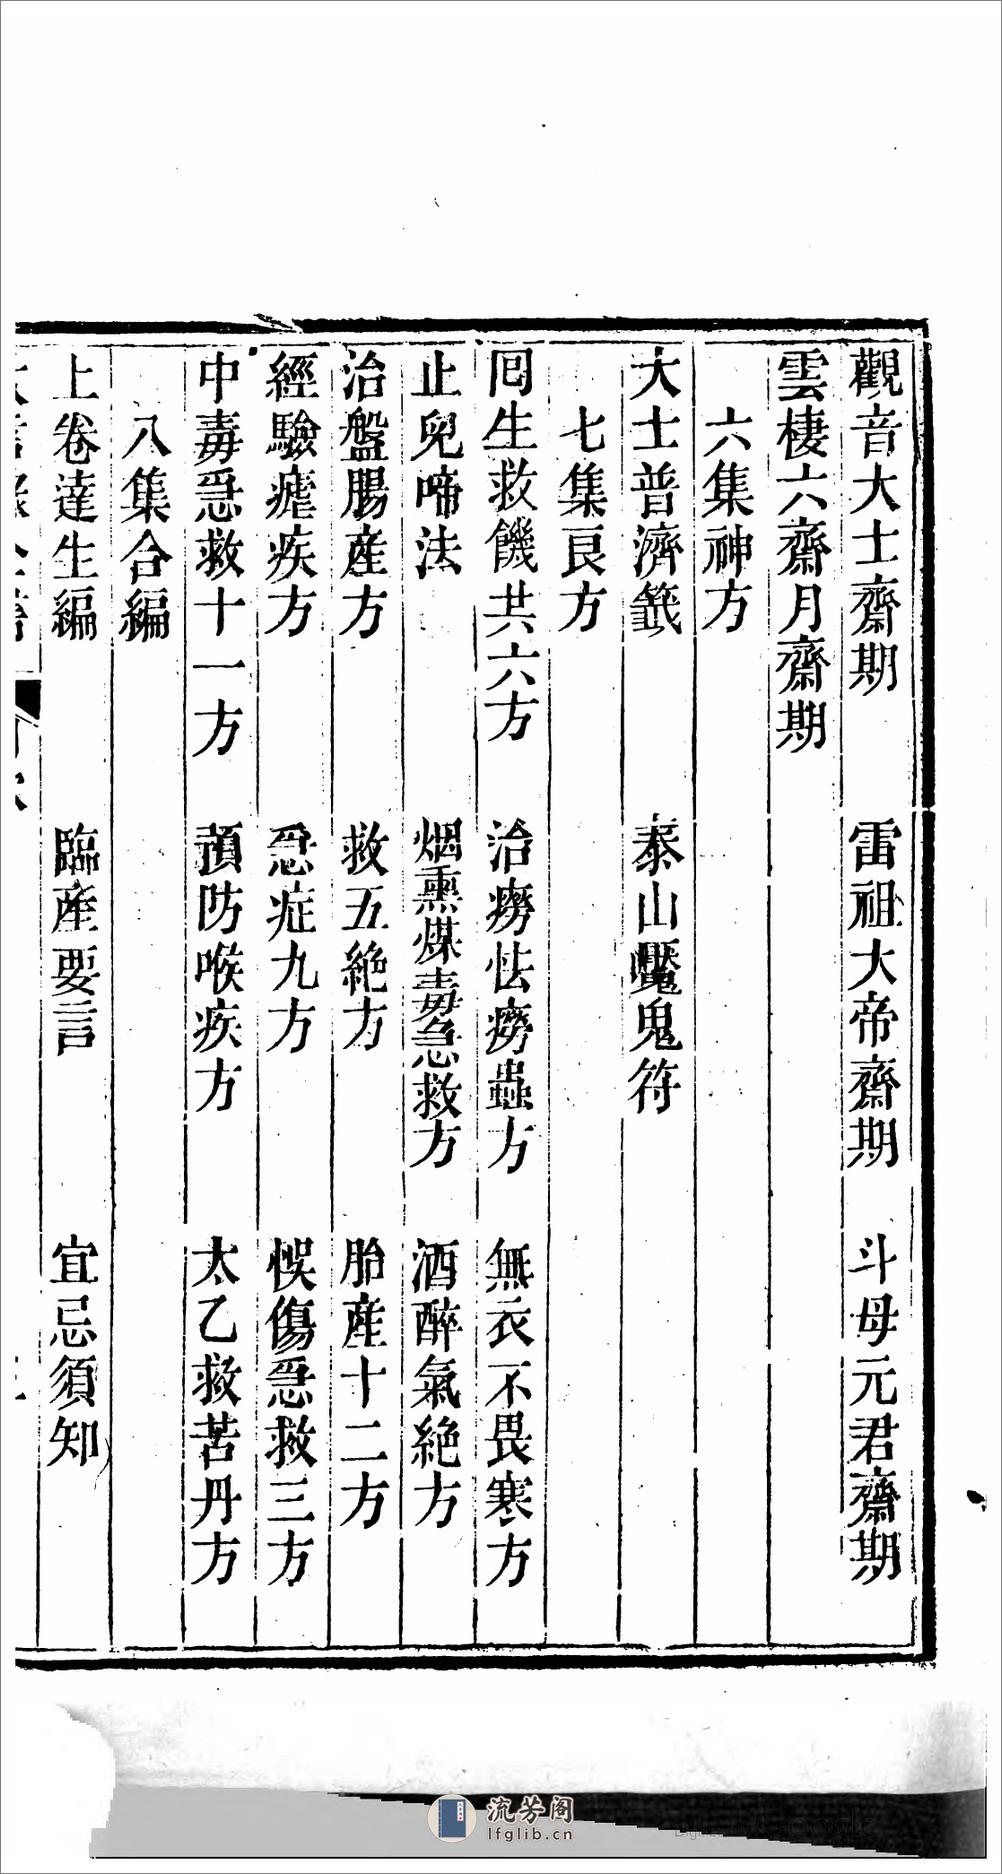 觀音大士齋期　雷祖大帝齋期　斗母元君齋期
雲棲六齋月齋期
六集神方
大士普濟籤　泰山魘鬼符
七集良方
囘生救饑共六方　治癆怯癆蟲方　無衣不畏寒方
止兒啼法　烟熏煤毒急救方　酒醉氣絶方
治盤腸産方　救五絶方　胎産十二方
經驗瘧疾方　急症九方　悞傷急救三方
中毒急救十一方　預防喉疾方　太乙救苦丹方
八集合編
上卷達生編　臨産要言　宜忌須知
流芳阁
lfglib.cn